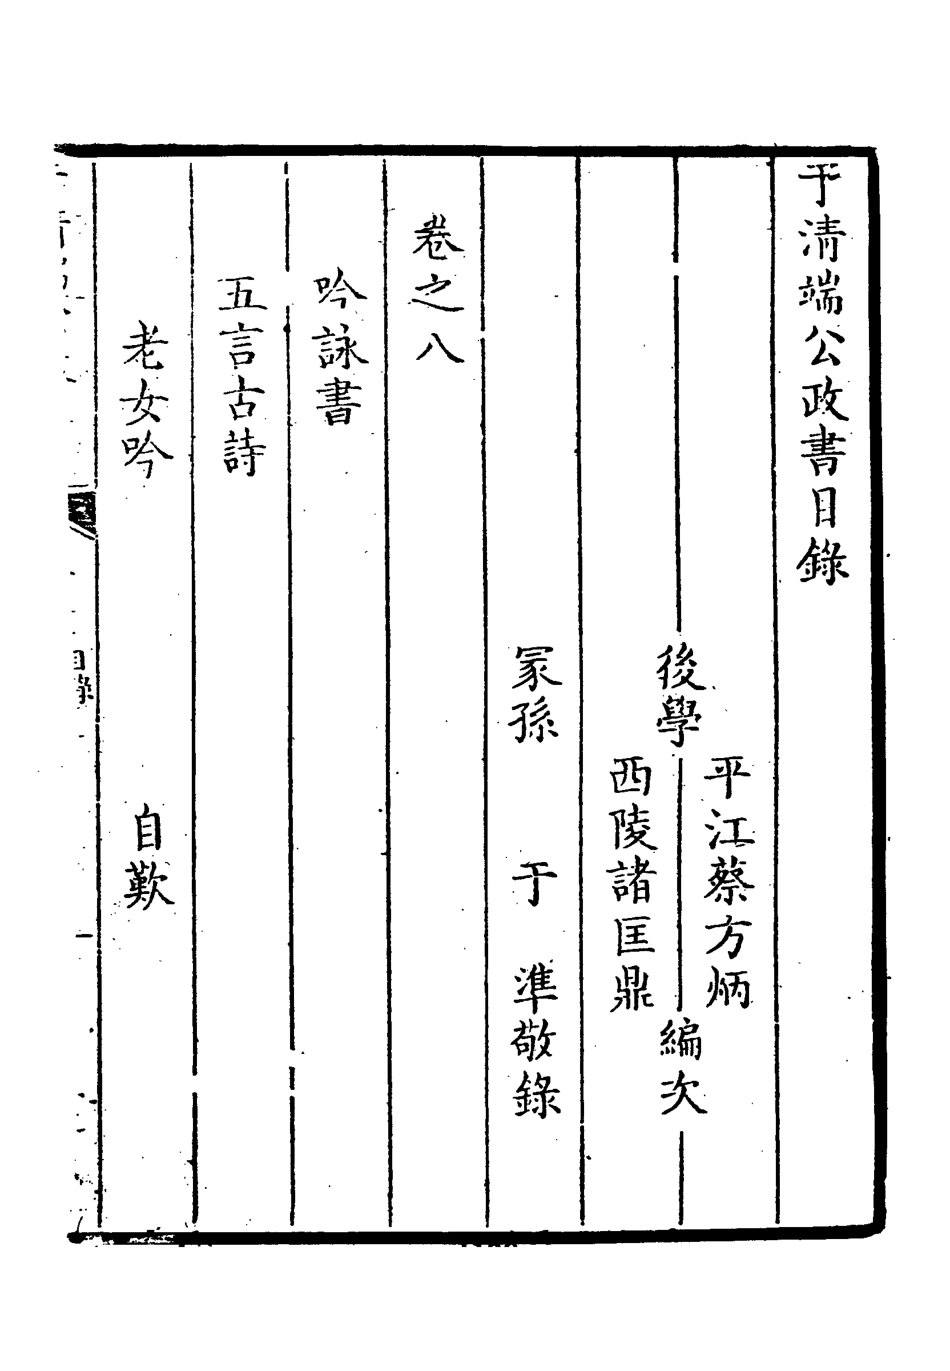 于清端公政書目錄
後學
平江蔡方炳
西陵諸匡鼎
編次
冢孫 于 準敬錄
卷之八
吟詠書
五言古詩
老女吟 自歎
目錄